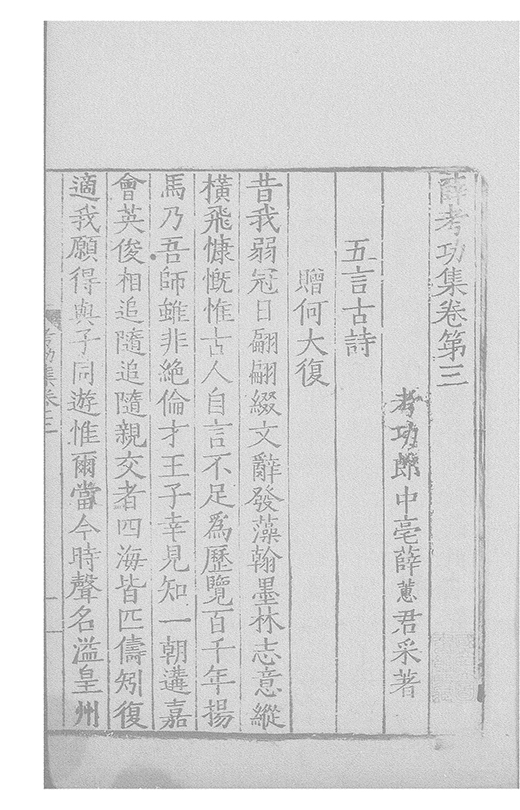 薛考功集卷第三
考功郎中亳薛蕙君采著
五言古詩
贈何大復
昔我弱冠日翩翩綴文辭發藻翰墨林志意縱
橫飛慷慨惟古人自言不足為歷覽百千年揚
馬乃吾師雖非絕倫才王子幸見知一朝遘嘉
會英俊相追隨追隨親交者四海皆匹儔矧復
適我願得與子同遊惟爾當今時聲名溢皇州
考功集卷三
一